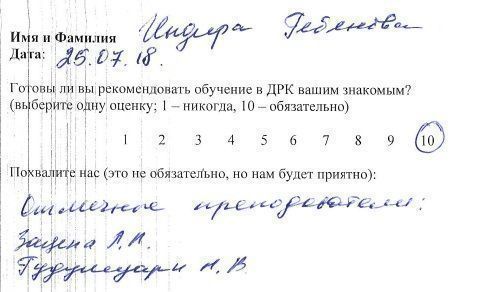 Имя и Фамилия Индира
Дата: 25.07.18.
Готовы ли вы рекомендовать обучение в ДРК вашим знакомым?
(выберите одну оценку; 1 – никогда, 10 – обязательно)
1 2 3 4 5 6 7 8 9 10
Похвалите нас (это не обязательно, но нам будет приятно):
Отличные преподаватели:
Зацепа Л.П.
Н. В.